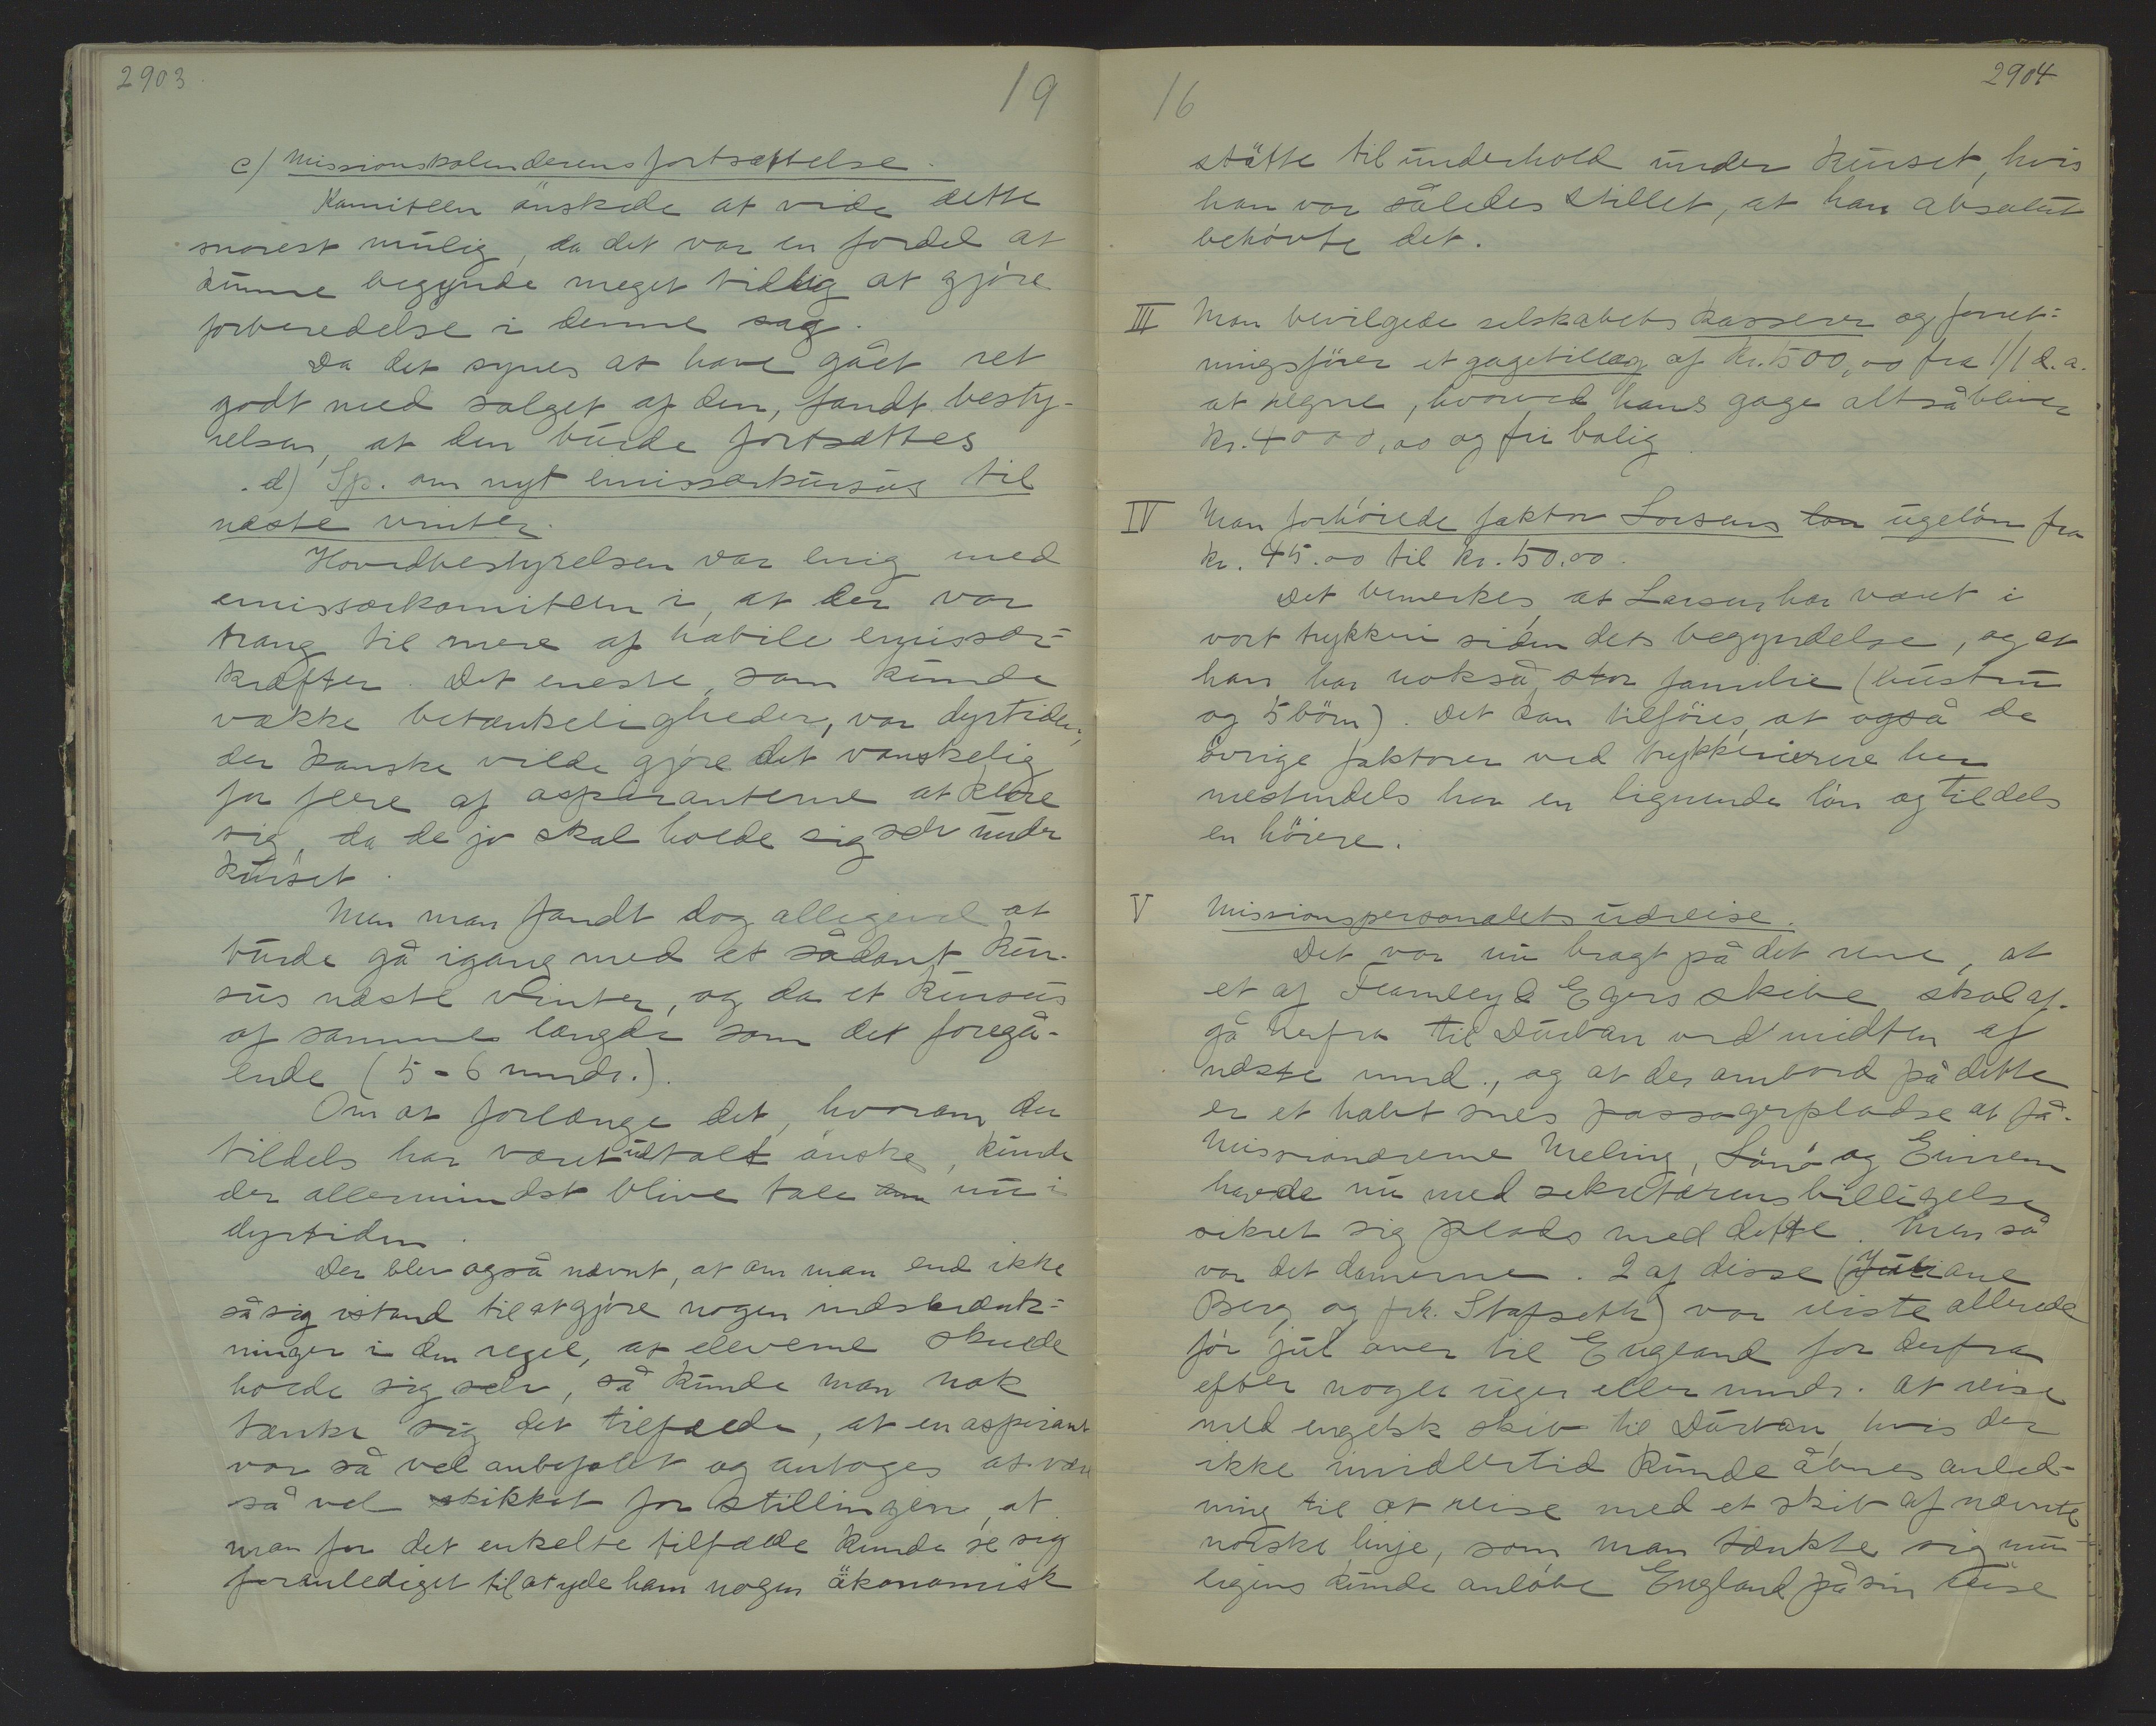 2903
19
c) Missionskalenderens fortsættelse.
Komiteen önskede at vide dette
snarest mulig, da det var en fordel at
kunne begynde meget tidlig at gjöre
forberedelse i denne sag.
Da det synes at have gået ret
godt med salget af den, fandt besty-
relsen, at den burde fortsættes
d) Sp. om nyt emissærkursus til
næste vinter.
Hovedbestyrelsen var enig med
emissærkomiteen i, at der var
trang til mere af habile emissær-
kræfter. Det eneste, som kunde
vække betænkeligheder, var dyrtiden,
der kanske vilde gjöre det vanskelig
for flere af aspiranterne at klare
sig, da de jo skal holde sig selv under
kurset.
Men man fandt dog alligevel at
burde gå igang med et sådant kur-
sus næste vinter, og da et kursus
af samme længde som det foregå-
ende (5-6 mndr.).
Om at forlænge det, hvorom der
tildels har været udtalt önske, kunde
der allermindst blive tale om nu i
dyrtiden.
Der blev også nævnt, at om man end ikke
så sig istand til at gjöre nogen indskrænk-
ninger i den regel, at eleverne skulde
holde sig selv, så kunde man nok
tænke sig det tilfælde, at en aspirant
var så vel anbefalet og antoges at være
så vel skikket for stillingen, at
man for det enkelte tilfælde kunde se sig
foranlediget til at yde ham nogen ökonomisk
16
2904
stötte til underhold under kurset, hvis
han var således stillet, at han absolut
behövte det.
III Man bevilgede selskabets kasserer og forret-
ningsförer et gagetillæg af kr. 500,00 fra 1/1 d.a.
at regne, hvorved hans gage altså bliver
kr. 4000,00 og fri bolig
IV Man forhöiede faktor Larsens lön ugelön fra
kr. 45.00 til kr. 50.00.
Det bemerkes, at Larsen har været i
vort trykkeri siden dets begyndelse, og at
han har nokså stor familie (hustru
og 5 börn). Det kan tilföies, at også de
övrige faktorer ved trykkerierne her
mestendels har en lignende lön og tildels
en höiere.
V Missionspersonalets udreise.
Det var nu bragt på det rene, at
et af Fearnley & Egers skibe skal af-
gå herfra til Durban ved midten af
næste mnd., og at der ombord på dette
er et halvt snes passagerpladse at få.
Missionærerne Meling, Lönö og Einrem
havde nu med sekretærens billigelse
sikret sig plads med dette. Men så
var det damerne. 2 af disse (Juliane
Berg og frk. Stafseth) var reiste allerede
för jul over til England for derfra
efter nogle uger eller mndr. at reise
med engelsk skib til Durban, hvis der
ikke imidlertid kunde åbnes anled-
ning til at reise med et skib af nævnte
norske linje, som man tænkte sig mu-
ligens kunde anlöbe England på sin reise